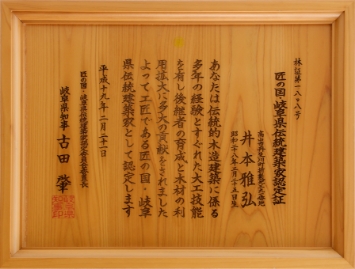 匠の国・岐阜県伝統建築家認定証
井本雅弘
あなたは伝統的木造建築に係る
多年の経験とすぐれた大工技能
を有し後継者の育成と木材の利
用拡大に多大の貢献をされました
よって工匠である匠の国・岐阜
県伝統建築家として認定します
平成十九年二月二十一日
岐阜県知事 古田 肇